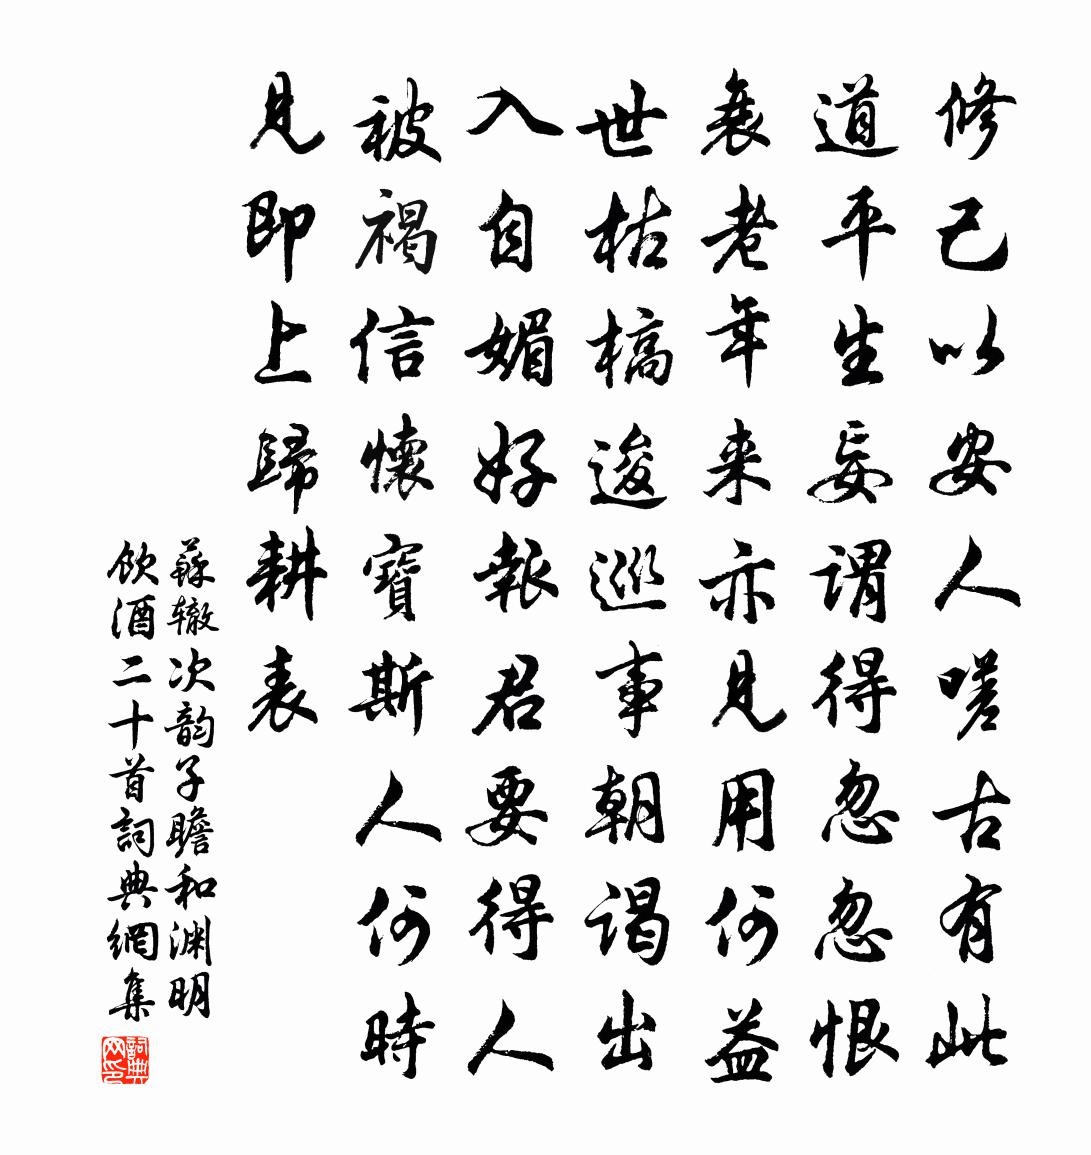 修己以安人嗟古有此
道平生妄謂得忽忽恨
衰老年来亦見用何益
世枯槁逡巡事朝謁出
入自媚好報君要得人
被褐信懷寶斯人何時
見即上歸耕表
蘇辙次韵子瞻和渊明
飲酒二十首詞典網集
詞典网印